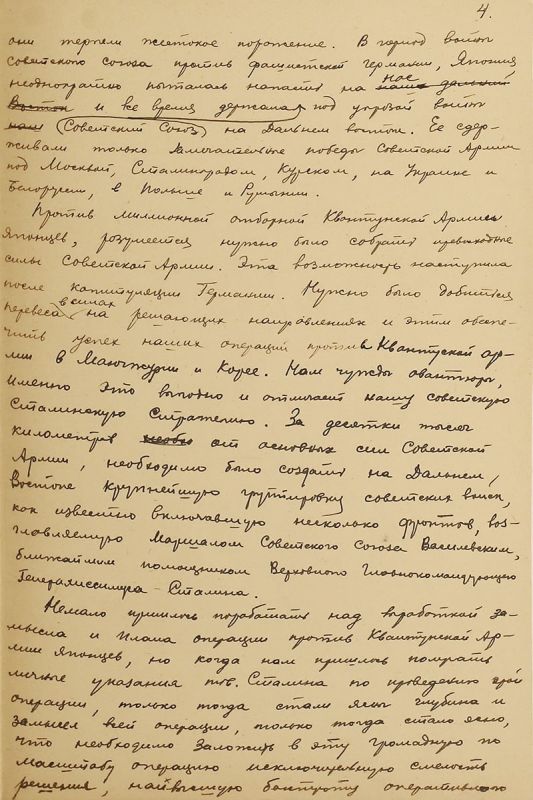 4.
они терпели жестокое поражение. В период войны
Советского Союза против фашистской Германии, Япония
неоднократно пыталась напасть на нас наш дальний
Восток и все время держала под угрозой войны
наш (Советский Союз) на Дальнем Востоке. Ее сдер-
живали только замечательные победы Советской Армии
под Москвой, Сталинградом, Курском, на Украине и
Белоруссии, в Польше и Румынии.
Против миллионной отборной Квантунской Армии
Японцев, разумеется нужно было собрать превосходные
силы Советской Армии. Эта возможность наступила
после капитуляции Германии. Нужно было добиться
перевеса в силах на решающих направлениях и этим обеспе-
чить успех наших операций против Квантунской ар-
мии в Манчжурии и Корее. Нам чужды авантюры,
именно это выгодно и отличает нашу советскую
Сталинскую Стратегию. За десятки тысяч
километров необхо от основных сил Советской
Армии, необходимо было создать на Дальнем,
Востоке крупнейшую группировку советских войск,
как известно включавшую несколько фронтов, воз-
главляемую Маршалом Советского Союза Василевским,
ближайшим помощником Верховного Главнокомандующего
Генералиссимуса - Сталина.
Немало пришлось поработать над выработкой за-
мысла и плана операции против Квантунской Ар-
мии Японцев, но когда нам пришлось
личные указания тов. Сталина по проведению этой
операции, только тогда стали ясны глубина и
замысел всей операции, только тогда стало ясно,
что необходимо заложить в эту громадную по
масштабу операцию исключительную смелость
решения, наивысшую быстроту оперативного